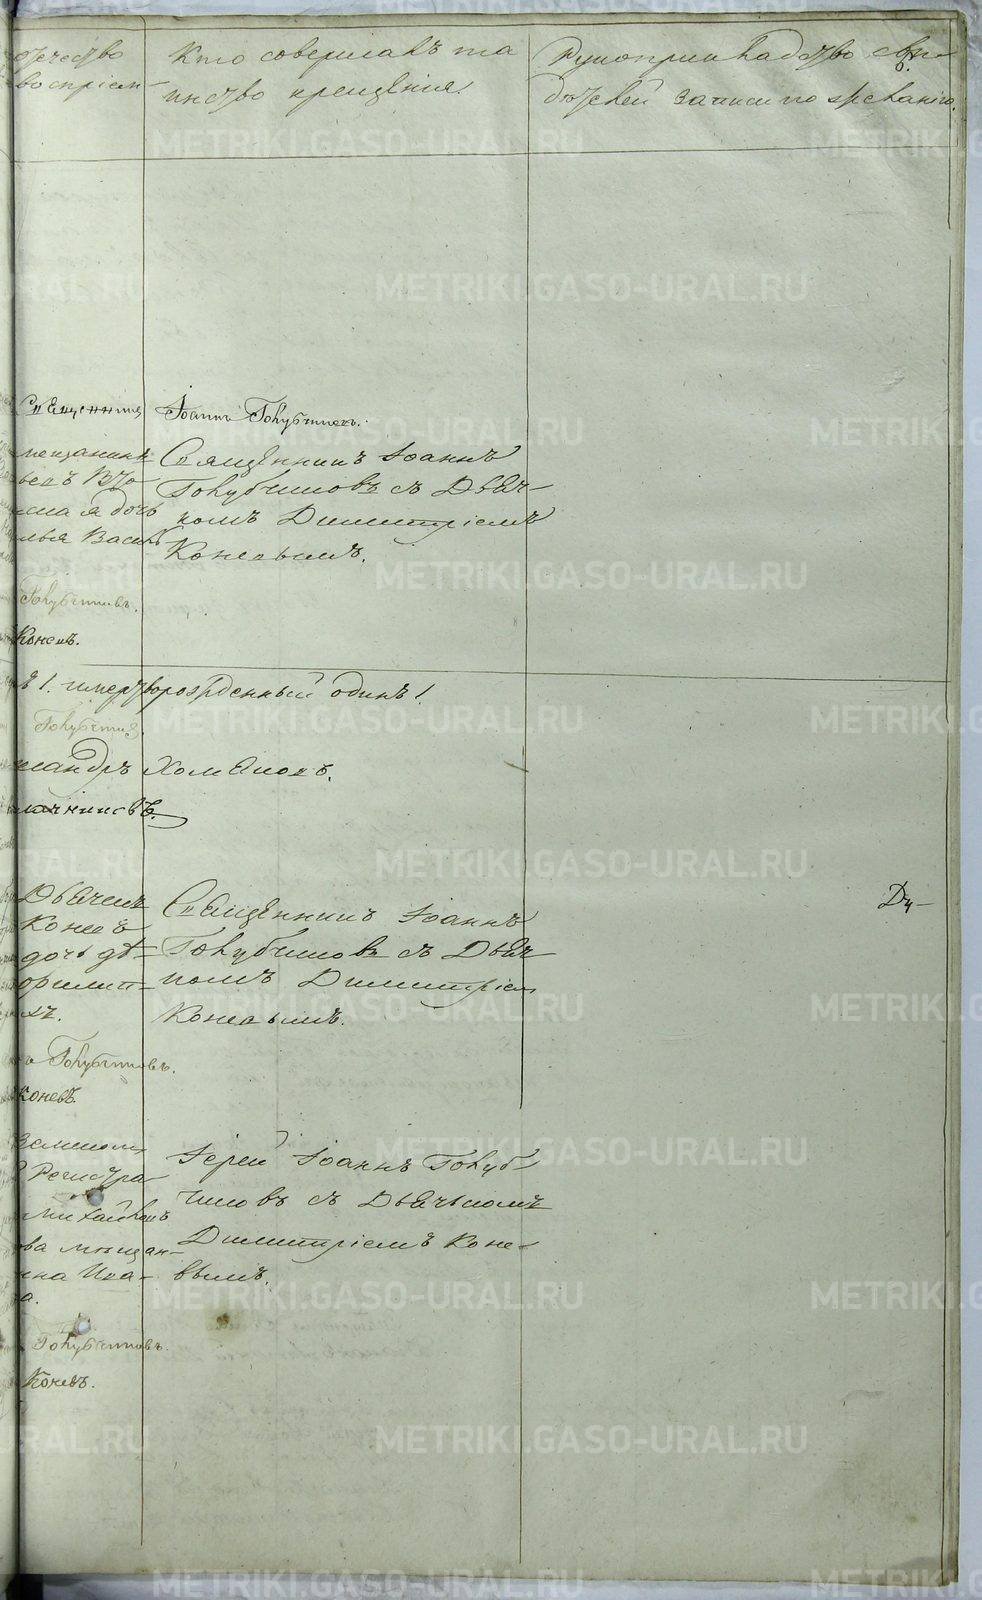 отчество
воспріем-
Кто совершалъ та
инство крещенія.
Рукоприкладство сви-
дѣтелей записи по желанію.
Священникъ Іоаннъ Голубчиковъ.
мещанина
ная дочь
Васил
Священникъ Іоаннъ
Голубчиковъ съ Дьяч-
комъ Димитріемъ
Коневымъ.
Голубчиковъ.
Коневъ.
ъ 1. мертворожденный одинъ 1.
Голубчиковъ.
сандръ Хомяковъ.
Дьячекъ
Коневъ
дочь дѣ-
Священникъ Іоаннъ
Голубчиковъ съ Дьяч
комъ Димитріем
Коневымъ.
Голубчиковъ.
Коневъ.
Регистра
Михайловъ
ова мѣщан-
ина Ива-
а.
Іерей Іоаннъ Голуб-
чиковъ съ Дьячькомъ
Димитріемъ Коне-
вымъ.
Голубчиковъ.
Коневъ.
METRIKI.GASO-URAL.RU